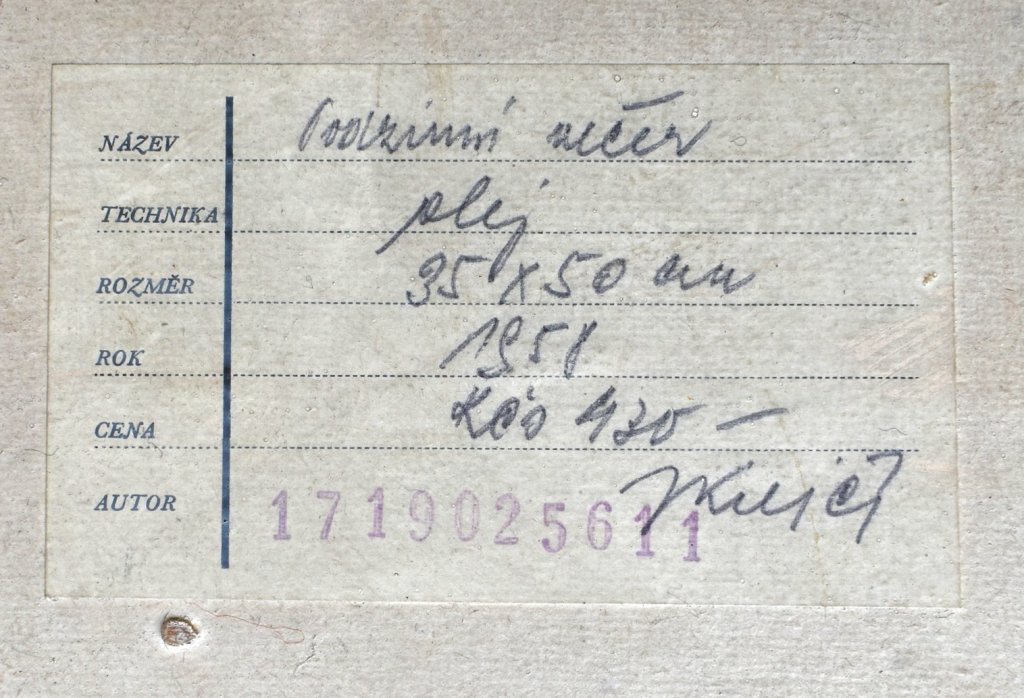 NÁZEV Podzimní večer
TECHNIKA olej
ROZMĚR 35 x 50 cm
ROK 1958
CENA Kčs 420 —
AUTOR
1719025611